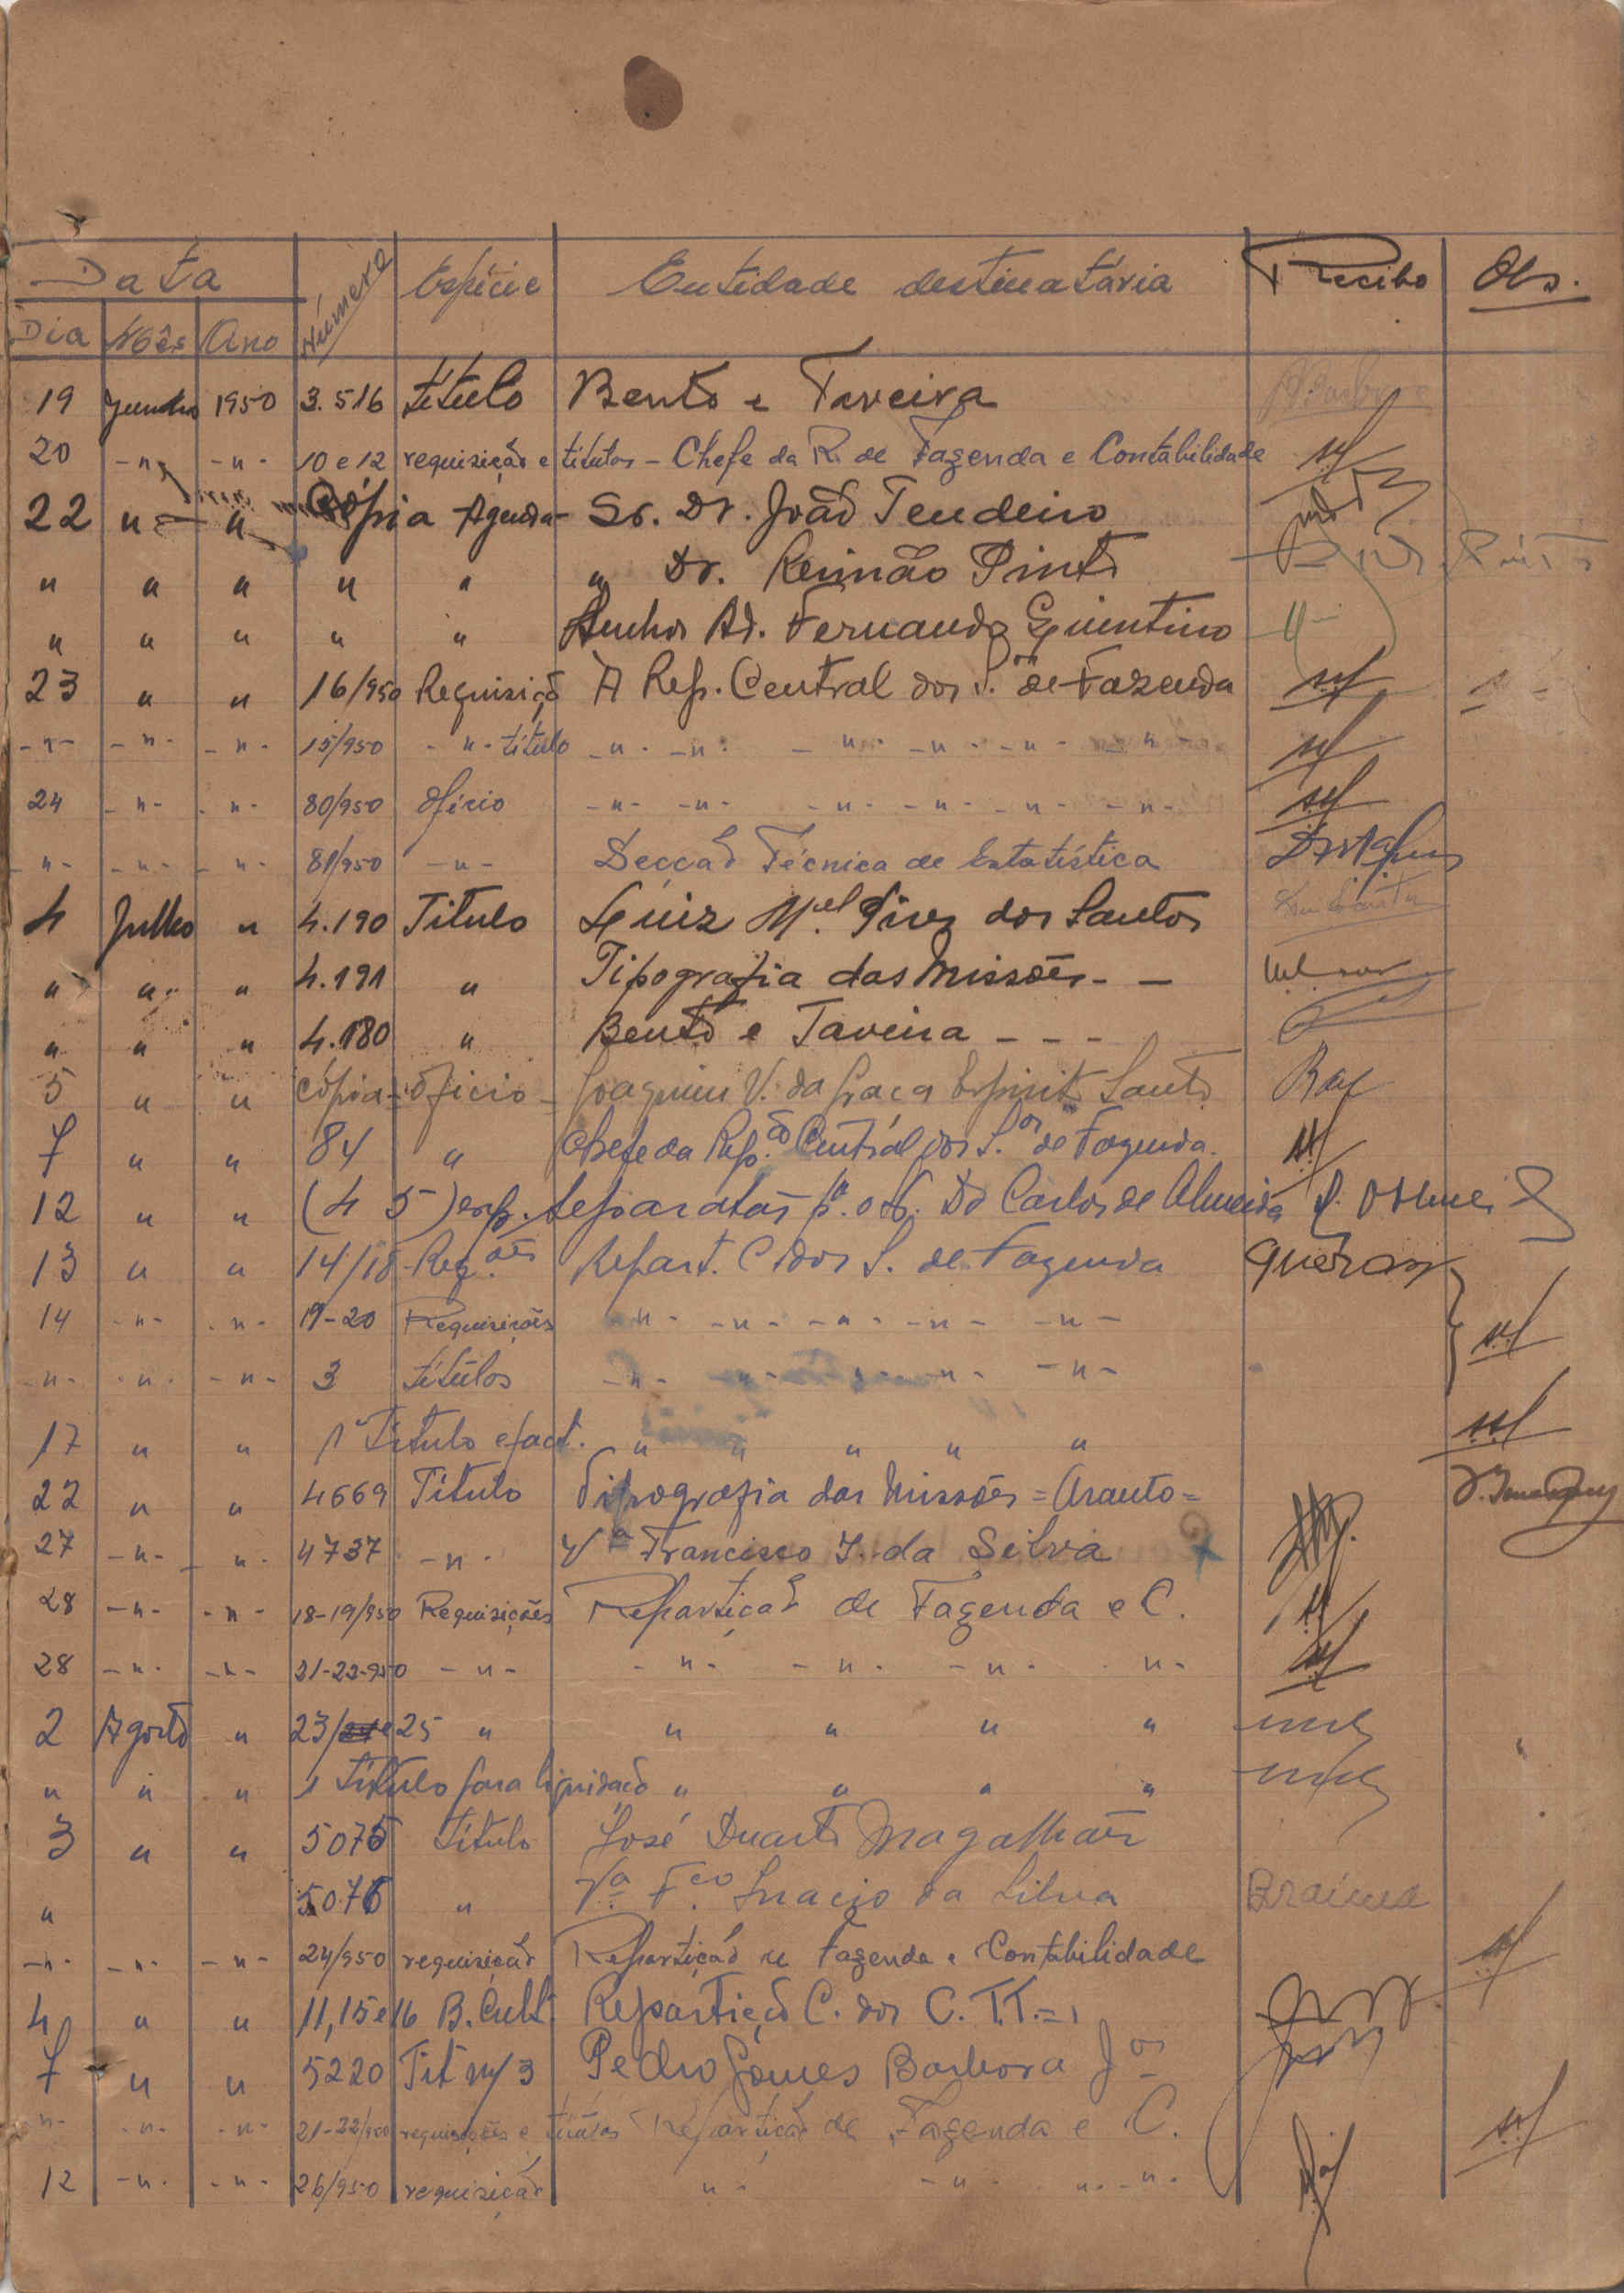 Data Número Espécie Entidade destinatária Recibo Obs.
Dia Mês Ano
19 Junho 1950 3.516 título Bento e Taveira
20 -"- -"- 10 e 12 requisição e títulos - Chefe da R. de Fazenda e Contabilidade
22 " " Cópia Agenda - Sr. Dr. João Tendeiro
" " " " " " Dr. Reimão Pinto
" " " " " Senhor Ad. Fernando Quintino
23 " " 16/950 Requisição À Rep. Central dos S.os de Fazenda
-"- -"- -"- 15/950 -"- título -"- -"- -"- -"- -"- -"-
24 -"- -"- 80/950 Ofício -"- -"- -"- -"- -"- -"-
-"- -"- -"- 81/950 -"- Secção Técnica de Estatística
4 Julho " 4.190 Título Luiz M.el Pires dos Santos
" " " 4.191 " Tipografia das Missões - -
" " " 4.180 " Bento e Taveira - - -
5 " " cópia - ofício - Joaquim V. da Graça Espírito Santo
7 " " 84 " Chefe da Rep.ão Central dos S.os de Fazenda.
12 " " (4 5) exp. Separatas p.a o Sr. Do Carlos de Almeida
13 " " 14/18 Req.ões Repart. C. dos S. de Fazenda
14 -"- -"- 19-20 Requisições -"- -"- -"- -"- -"-
-"- -"- -"- 3 títulos -"- -"- -"- -"- -"-
17 " " 1 Título e fact. " " " " "
22 " " 4669 Título Tipografia das Missões = Arauto =
27 -"- -"- 4737 -"- Vª Francisco I. da Silva
28 -"- -"- 18-19/950 Requisições Repartição de Fazenda e C.
28 -"- -"- 21-22-950 -"- -"- -"- -"- -"-
2 Agosto " 23/ 25 " " " " "
" " " 1 Título para liquidação " " " "
3 " " 5075 Título José Duarte Magalhães
" 5076 " Vª F.co Inácio da Silva Braima
-"- -"- -"- 24/950 requisição Repartição de Fazenda e Contabilidade
4 " " 11, 15 e 16 B. Cult. Repartição C. dos C.T.T. =
7 " " 5220 Tit m/3 Pedro Gomes Barbosa J.or
-"- -"- -"- 21-22/950 requisições e títulos Repartição de Fazenda e C.
12 -"- -"- 26/950 requisição -"- -"- " -"-